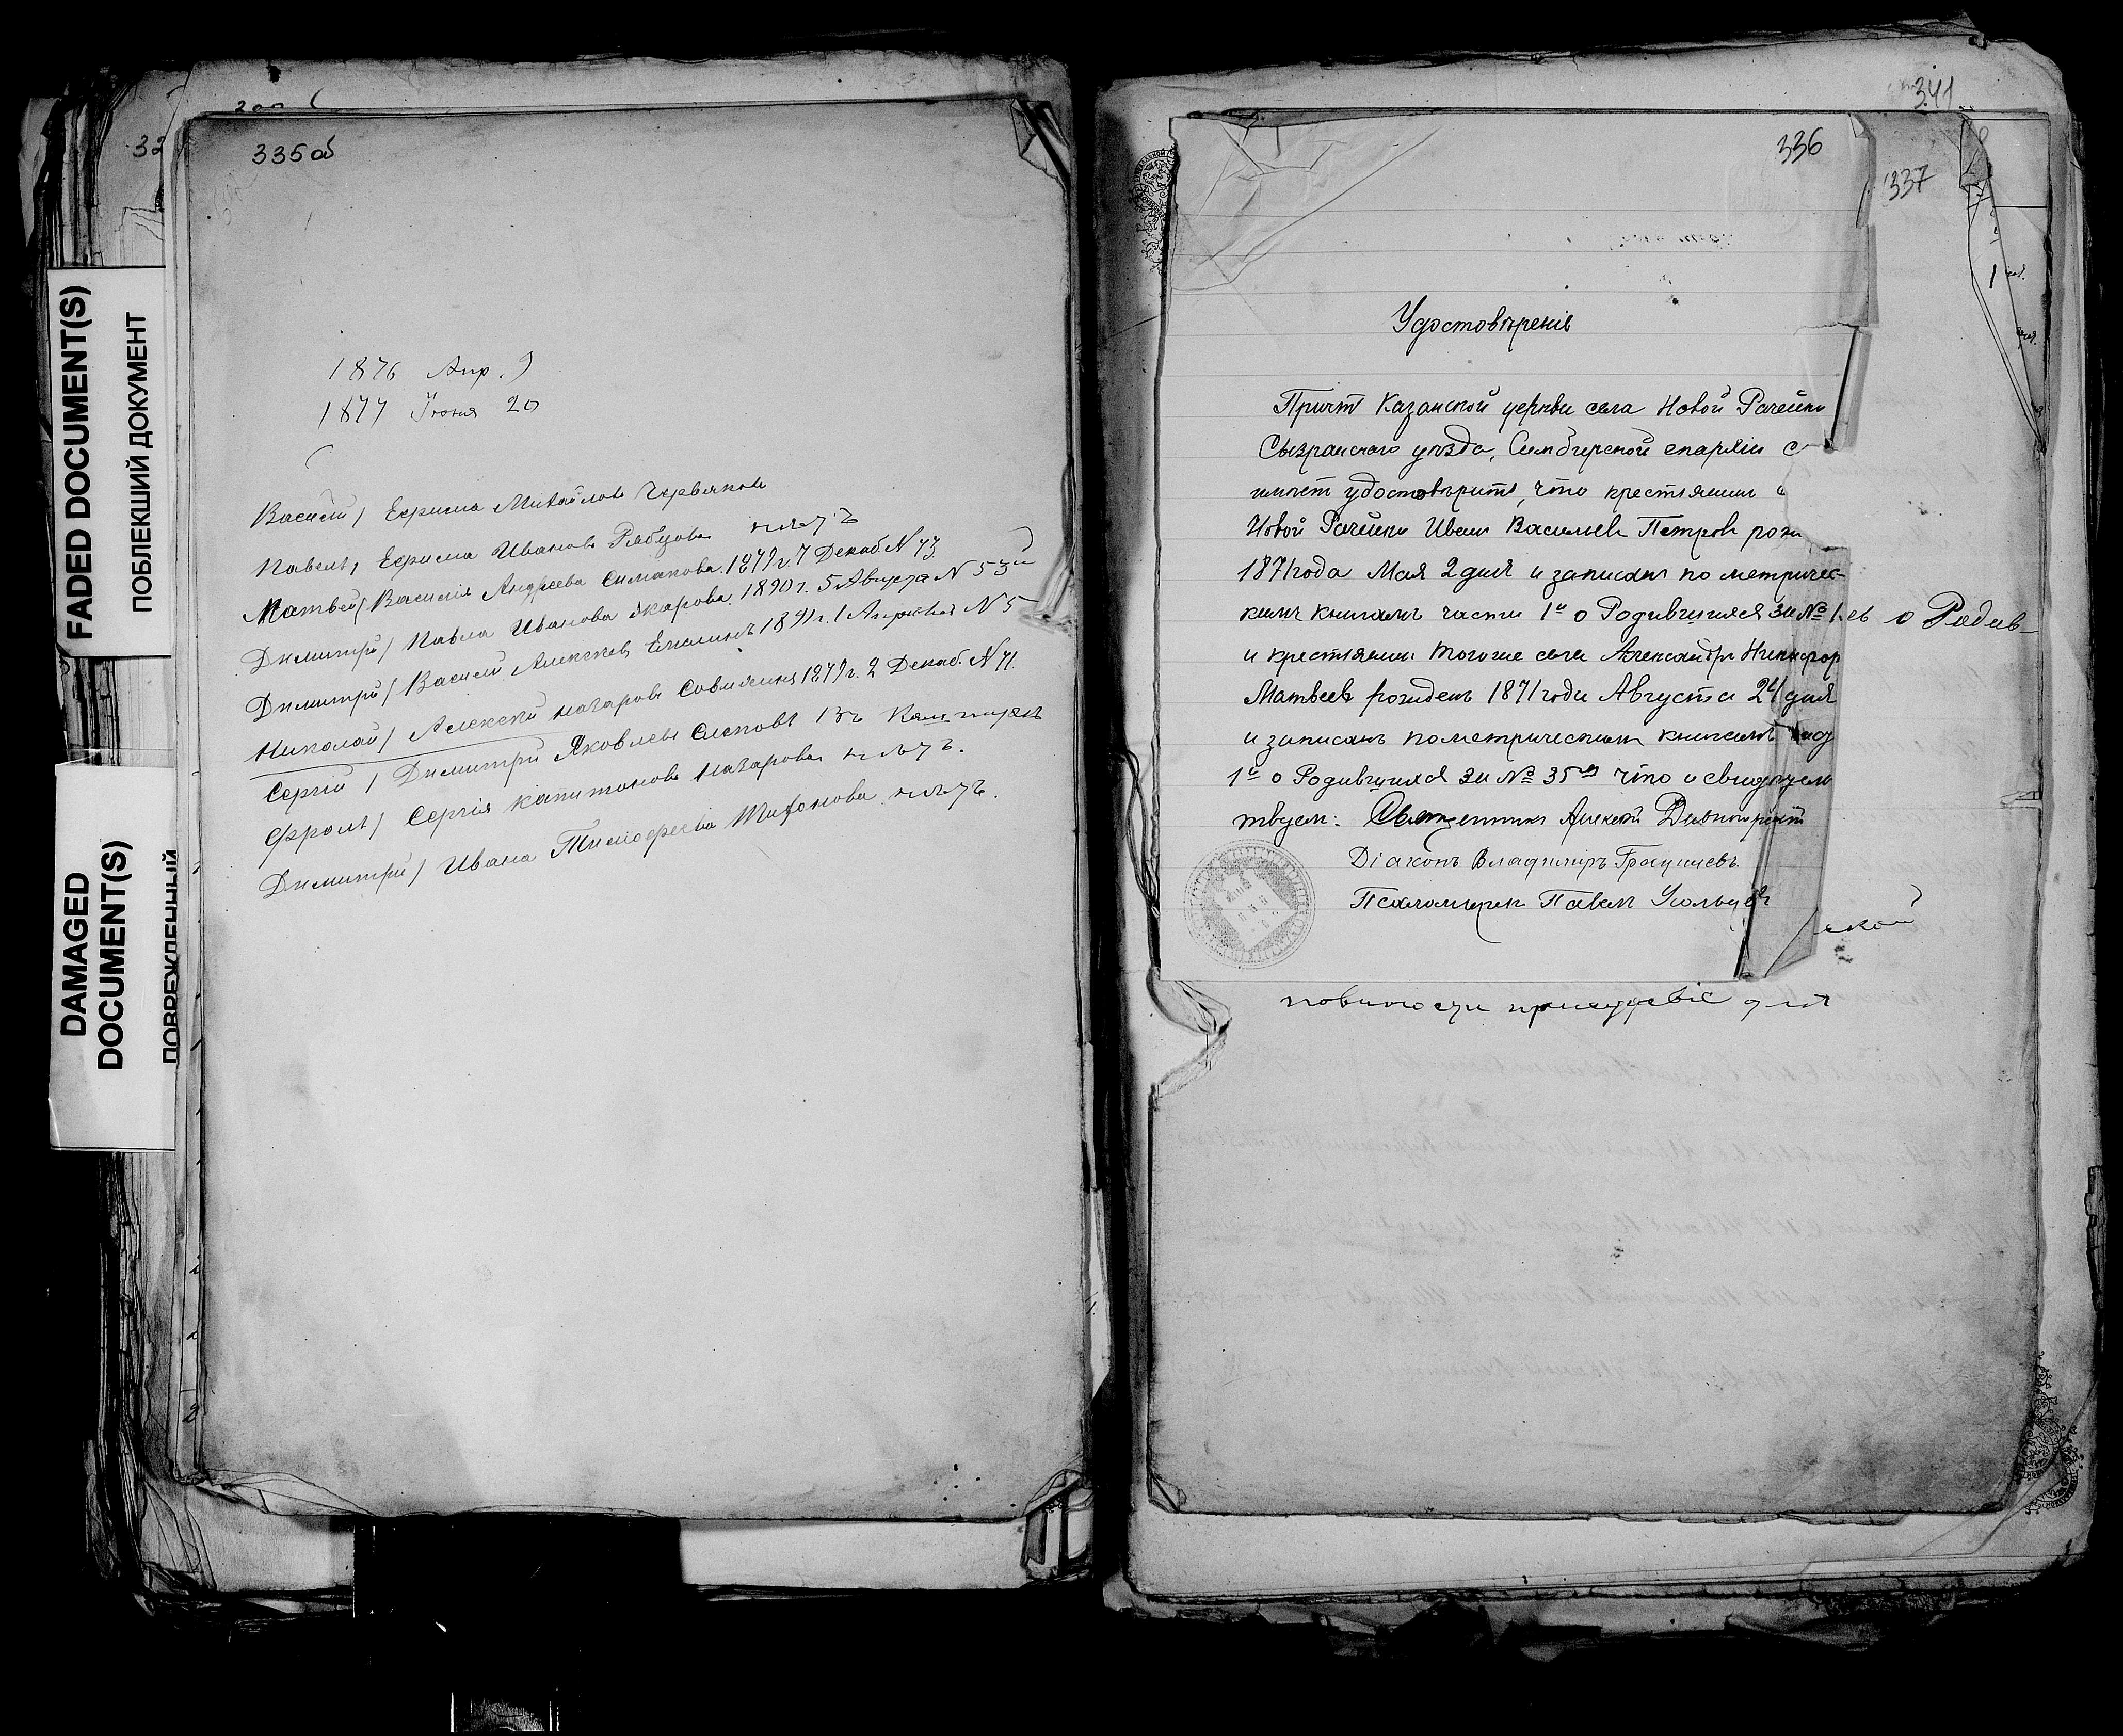 FADED DOCUMENT(S)
ПОБЛЕКШИЙ ДОКУМЕНТ
DAMAGED
DOCUMENT(S)
ПОВРЕЖДЕННЫЙ
335 об
1876 Апр. 9
1877 Июня 20
Василій / Ефрема Михайлова Червякова
Павелъ / Ефрема Иванова Рябцова нѣтъ
Матвей / Василія Андреева Симакова 1879 г. 7 Декаб. N 73
Димитрій / Павла Иванова 1890 г. 5 Августа N 53й
Димитрій / Василій Алексеевъ 1891 г. 1 Апреля N 5
Николай / Алексей Назаровъ 1879 г. 2 Декаб. N 71.
Сергій / Димитрій Яковлевъ Слеповъ
Фролъ / Сергія Капитонова Назарова нѣтъ.
Димитрій / Ивана Тимофеева Тихонова нѣтъ.
341
336
337
Удостовѣреніе
Причтъ Казанской церкви села Новой Рачейки
Сызранскаго уѣзда, Симбирской епархіи с
имѣетъ удостовѣрить, что крестьянинъ
Новой Рачейки Иванъ Васильевъ Петровъ рож
1871 года Мая 2 дня и записанъ по метричес-
кимъ книгамъ части 1й о Родившихся за № о Родив-
и крестьянинъ того же села Александръ Никифор
Матвеевъ рожденъ 1871 года Августа 24 дня
и записанъ по метрическимъ книгамъ
1й о Родившихся за № 35м что и свидѣтельс
твуем: Священникъ Алексей Дивногорскій
Діаконъ Владиміръ
Псаломщикъ Павелъ Усольцевъ
ской
повинности